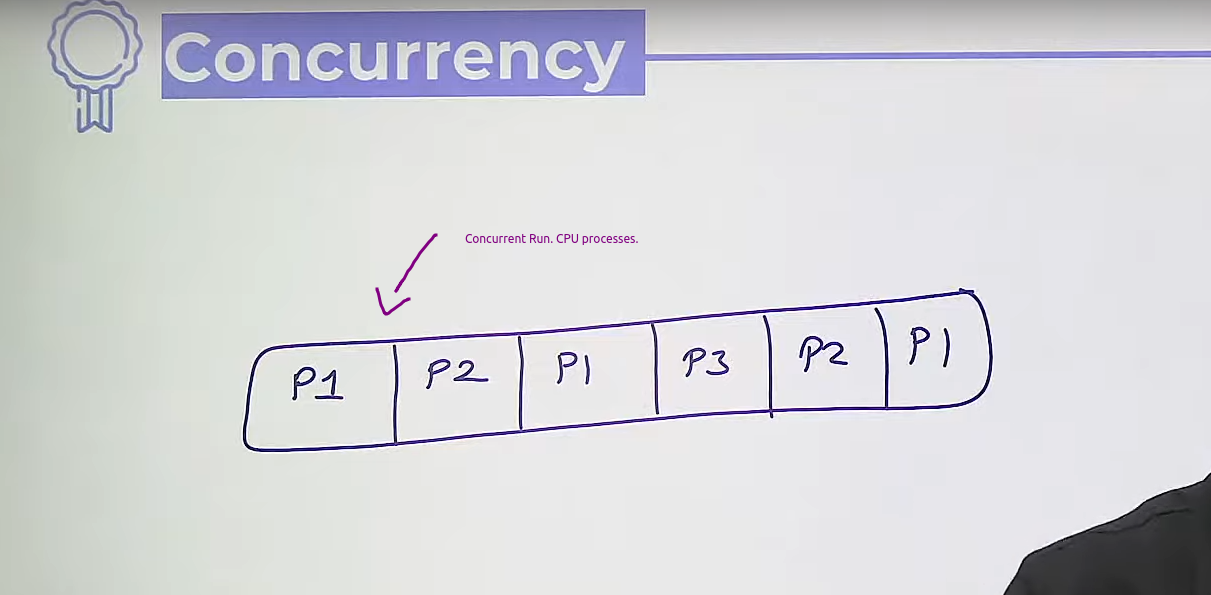 Concurrency
Concurrent Run. CPU processes.
P1 P2 P1 P3 P2 P1